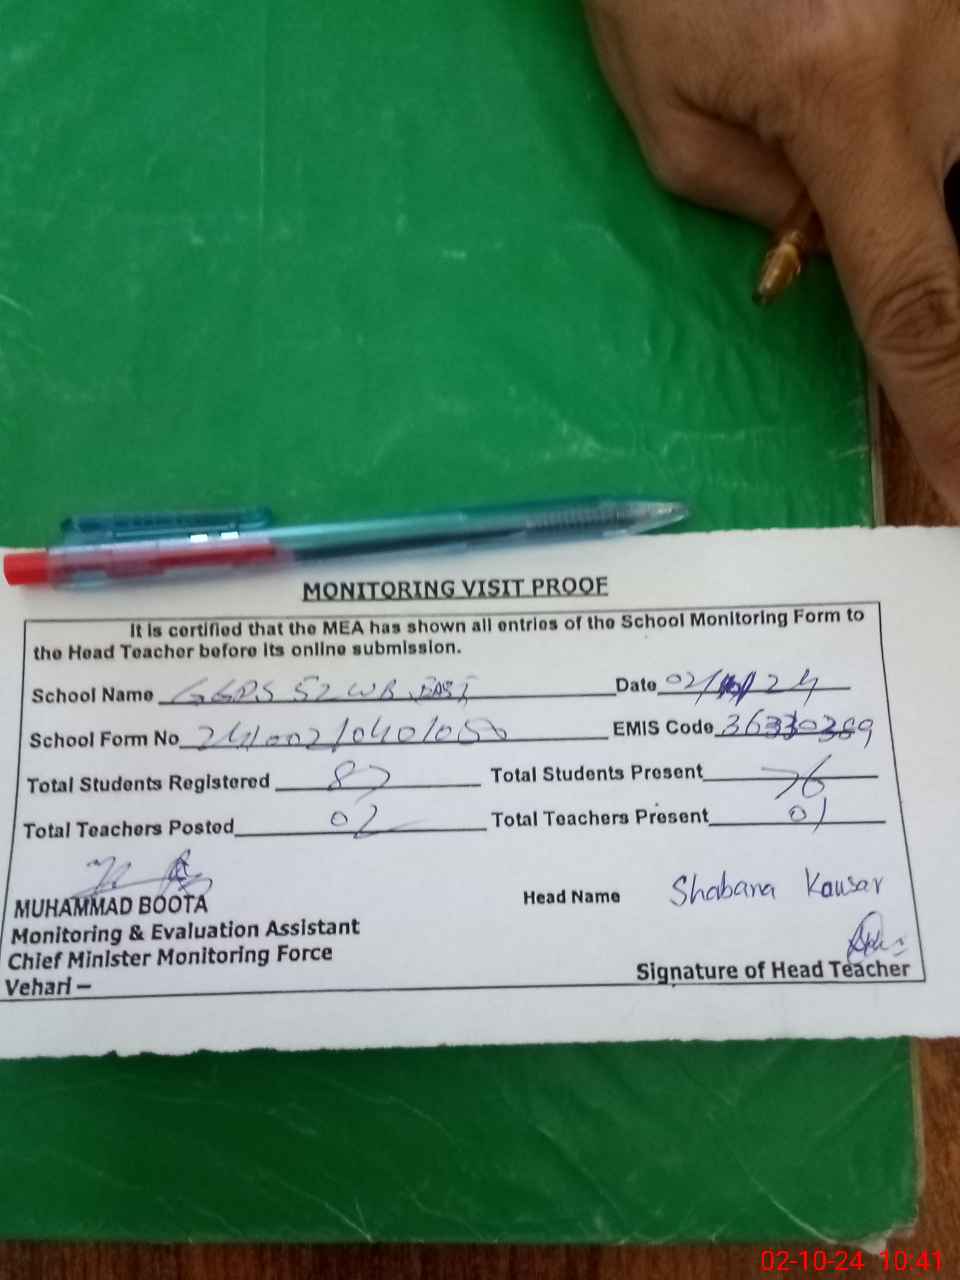 MONITORING VISIT PROOF
It is certified that the MEA has shown all entries of the School Monitoring Form to
the Head Teacher before its online submission.
School Name GGPS 52 WB EAST Date 02/ /24
School Form No EMIS Code
Total Students Registered 87 Total Students Present 76
Total Teachers Posted 02 Total Teachers Present 01
MUHAMMAD BOOTA
Monitoring & Evaluation Assistant
Chief Minister Monitoring Force
Vehari –
Head Name Shabana Kausar
Signature of Head Teacher
02-10-24 10:41